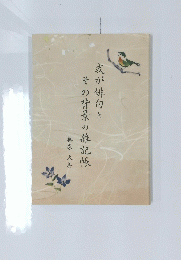 我が俳句と
その背景の雑記帳